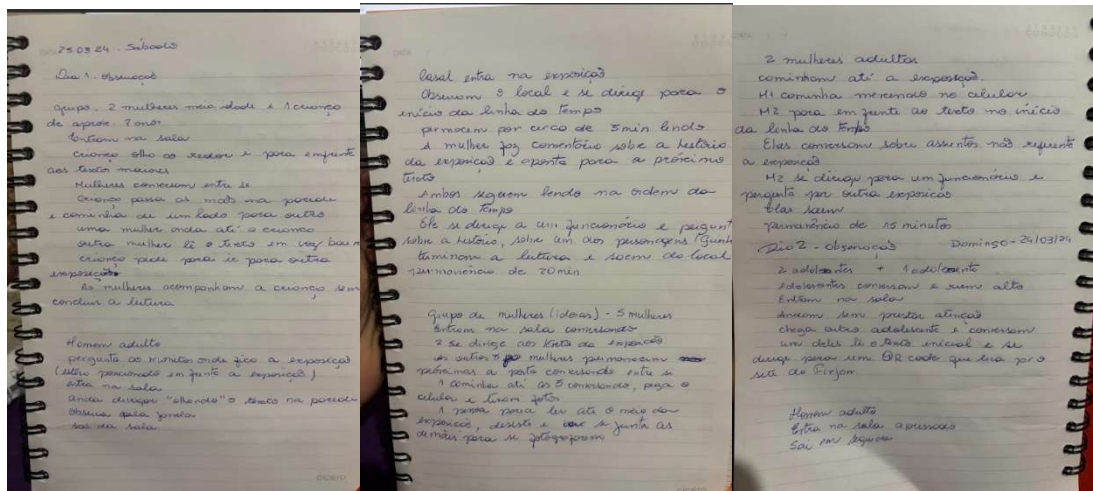 23.03.24 - Sábado
Dia 1 - observação
grupo. 2 mulheres meia idade e 1 criança
de aprox. 7 anos
Entram na sala
criança olha ao redor e para emfrente
aos textos maiores
Mulheres conversam entre si
criança passa as mãos na parede
e caminha de um lado para outro
uma mulher anda até a criança
outra mulher lê o texto em voz baixa
criança pede para ir para outra
exposição
As mulheres acompanham a criança sem
concluir a leitura
Homem adulto
pergunta ao onde fica a exposição
(estava posicionado em frente a exposição)
entra na sala
anda devagar "olhando" o texto na parede
observa pela janela
sai da sala
Casal entra na exposição
Observam o local e se dirige para o
início da linha do tempo
permacem por cerca de 5min lendo
A mulher faz comentário sobre a história
da exposição e aponta para a próximo
texto
Ambos seguem lendo na ordem da
linha do tempo
Ele se dirige a um funcionário e pergunt
sobre a história, sobre um dos personagens
terminam a leitura e saem do local
permanência de 20min
Grupo de mulheres (idosas) - 5 mulheres
Entram na sala conversando
2 se dirige aos textos da exposição
as outras 3 mulheres permanecem
próximas a porta conversando entre si
1 caminha até as 3 conversando, pega o
celular e tiram fotos
1 para ler até o meio da
exposição, desiste e se junta as
demais para se fotografarem
2 mulheres adultas
caminham até a exposição.
M1 caminha mexendo no celular
M2 para em frente ao texto no início
da linha do tempo
Elas conversam sobre assuntos não referente
a exposição
M2 se dirige para um funcionário e
pergunta por outra exposição
Elas saem
permanência de 15 minutos
Dia 2 - observação Domingo - 24/03/24
2 adolescentes + 1 adolescente
Adolescentes conversam e riem alto
Entram na sala
Andam sem prestar atenção
chega outro adolescente e conversam
um deles lê o texto inicial e se
dirige para um QR code que leva para o
site da Firjan.
Homem adulto
Entra na sala apressado
Sai em seguida